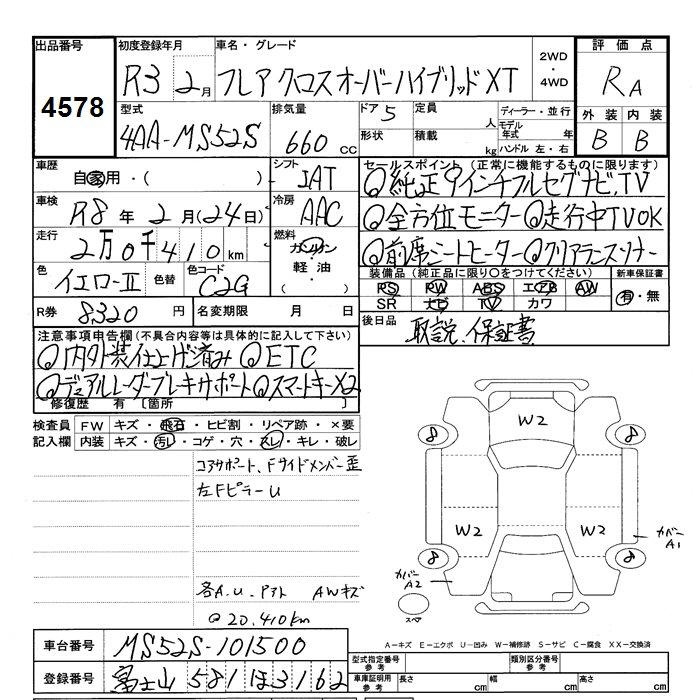 出品番号 初度登録年月 車名・グレード 2WD・4WD 評価点
4578 R3 2月 フレア クロスオーバーハイブリッド XT RA
型式 排気量 ドア 5 定員 人 ディーラー・並行 外装 内装
4AA-MS52S 660 cc 形状 積載 kg モデル年式 年 ハンドル 左・右 B B
車歴 自家用・( ) シフト IAT セールスポイント (正常に機能するものに限ります)
◎純正9インチフルセグナビ,TV
車検 R8年2月(24日) 冷房 AAC ◎全方位モニター◎走行中TVOK
走行 2万0千410km 燃料 ガソリン 軽油・( ) ◎前席シートヒーター◎クリアランスソナー
色 イエロー-II 色替 色コード C2G 装備品 (純正品に限り○をつけてください) 新車保証書
PS PW ABS エアB AW 有・無
SR ナビ TV カワ
R券 8320円 名変期限 月 日 後日品 取説、保証書
注意事項申告欄(不具合内容等は具体的に記入して下さい)
◎内外装仕上げ済み ◎ETC
◎デュアルレーダーブレーキサポート◎スマートキーX2
修復歴 有 [箇所 ]
検査員記入欄 FW キズ・飛石・ヒビ割・リペア跡・×要
内装 キズ・汚レ・コゲ・穴・スレ・キレ・破レ
コアサポート、Fサイドメンバー歪
左FピラーU
各A.U.アト AWキズ
@20,410km
W2
8 8
W2 W2
カバーA1
8 8
カバーA2
スペア
A-キズ E-エクボ U-凹み W-補修跡 S-サビ C-腐食 XX-交換済
車台番号 MS52S-101500 型式指定番号 参考 類別区分番号 参考
登録番号 富士山 581 ほ 3162 車庫証明用 参考 長さ cm 幅 cm 高さ cm